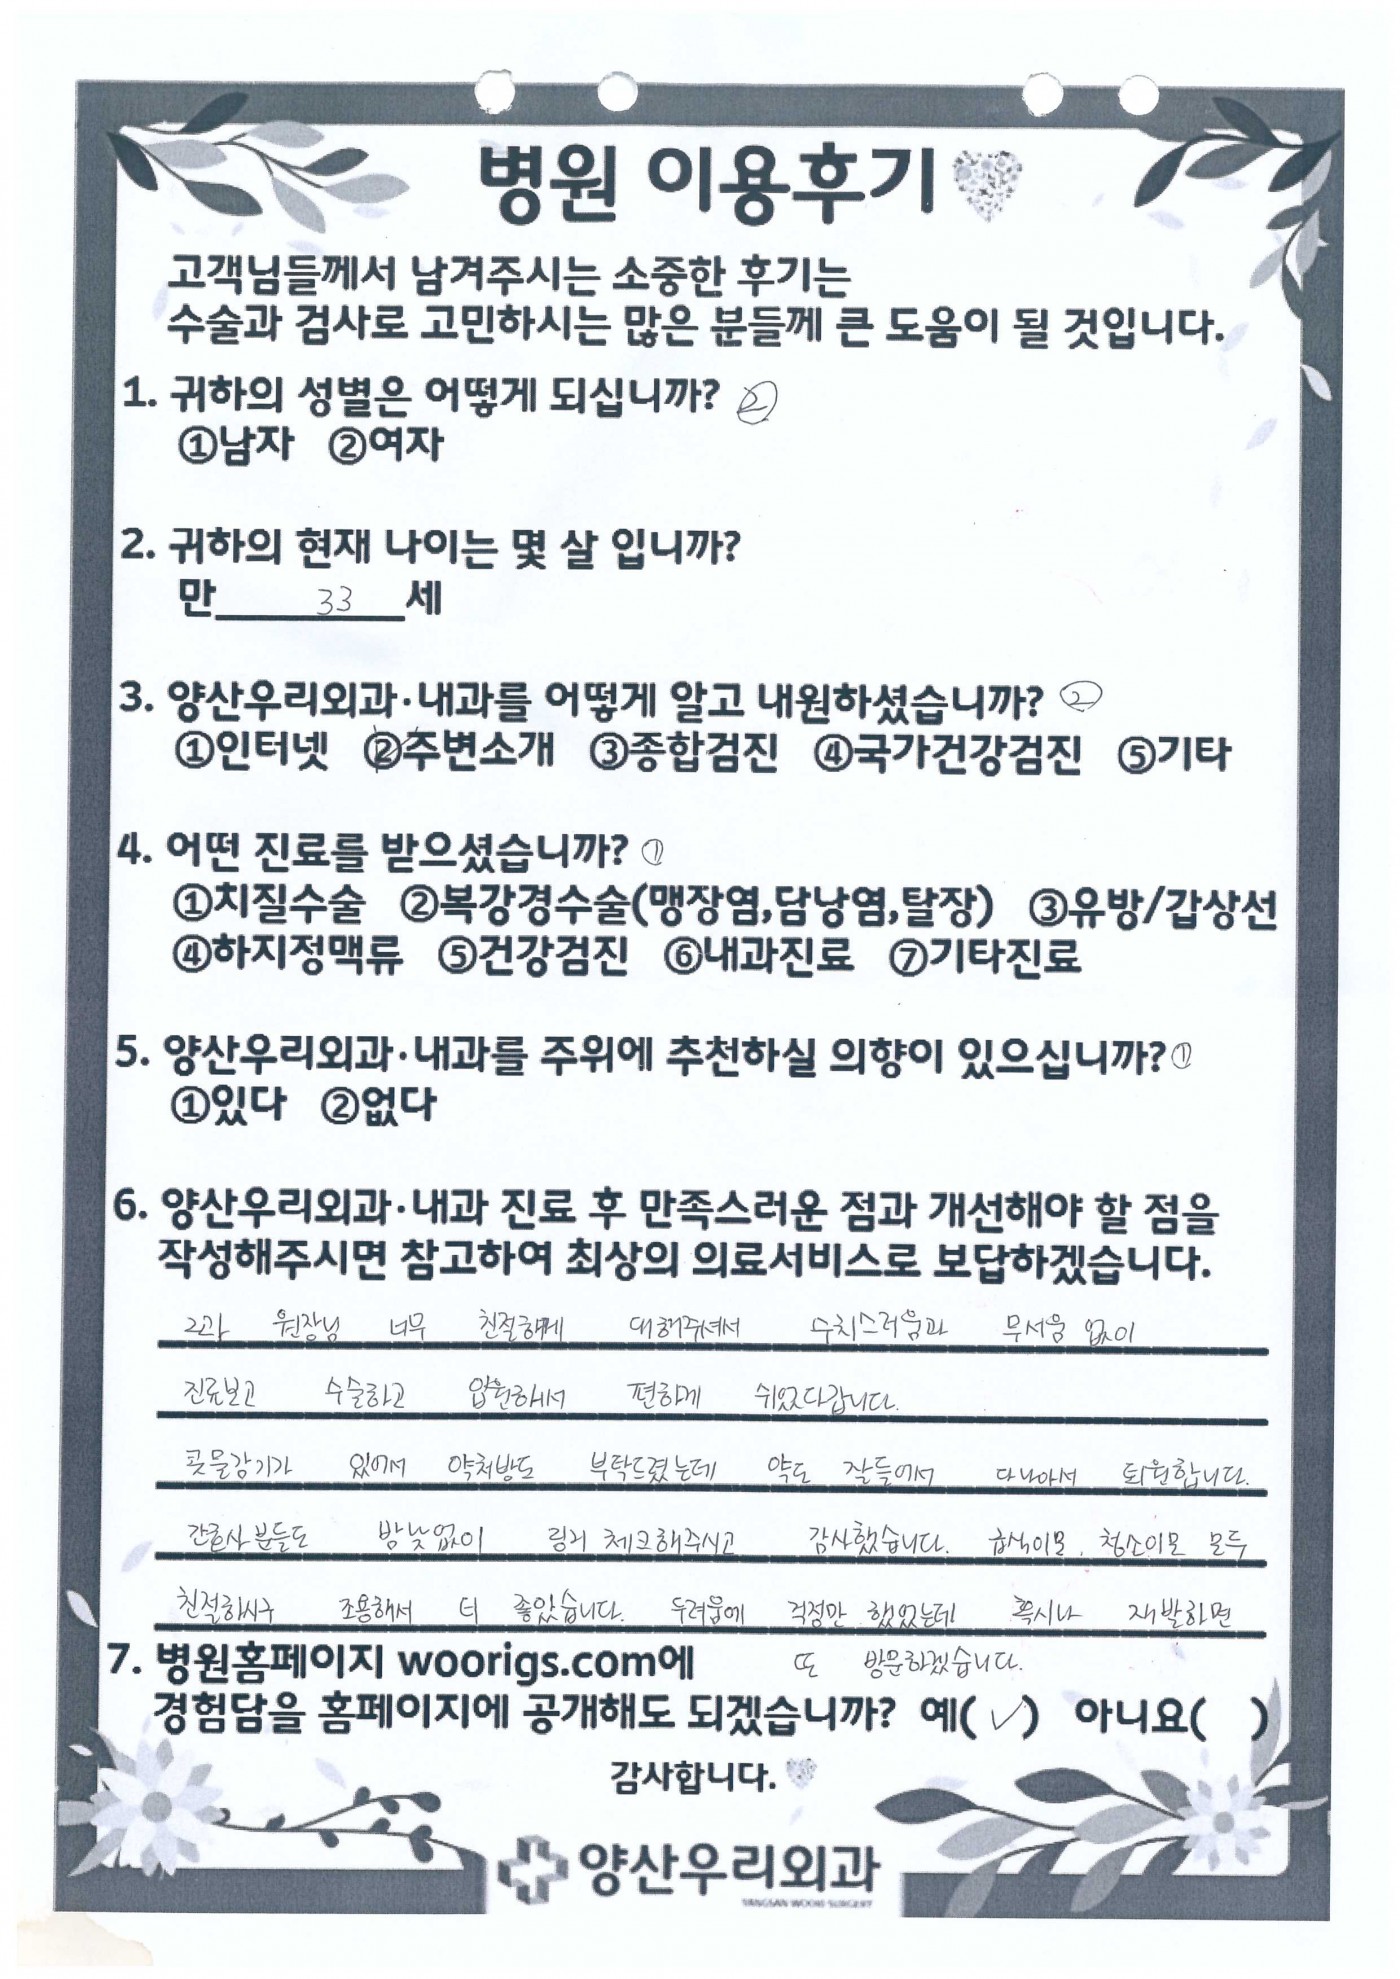 병원 이용후기
고객님들께서 남겨주시는 소중한 후기는
수술과 검사로 고민하시는 많은 분들께 큰 도움이 될 것입니다.
1. 귀하의 성별은 어떻게 되십니까? ②
①남자 ②여자
2. 귀하의 현재 나이는 몇 살 입니까?
만 33 세
3. 양산우리외과·내과를 어떻게 알고 내원하셨습니까? ②
①인터넷 ②주변소개 ③종합검진 ④국가건강검진 ⑤기타
4. 어떤 진료를 받으셨습니까? ①
①치질수술 ②복강경수술(맹장염,담낭염,탈장) ③유방/갑상선
④하지정맥류 ⑤건강검진 ⑥내과진료 ⑦기타진료
5. 양산우리외과·내과를 주위에 추천하실 의향이 있으십니까? ①
①있다 ②없다
6. 양산우리외과·내과 진료 후 만족스러운 점과 개선해야 할 점을
작성해주시면 참고하여 최상의 의료서비스로 보답하겠습니다.
2과 원장님 너무 친절하게 대해주셔서 수치스러움과 무서움 없이
진료보고 수술하고 입원해서 편하게 쉬었다갑니다.
콧물감기가 있어서 약처방도 부탁드렸는데 약도 잘들어서 다나아서 퇴원합니다.
간호사분들도 밤낮없이 링거 체크해주시고 감사했습니다. 청소이모 모두
친절하시구 조용해서 더 좋았습니다. 두려움에 걱정만 했었는데 혹시나 재발하면
또 방문하겠습니다.
7. 병원홈페이지 woorigs.com에
경험담을 홈페이지에 공개해도 되겠습니까? 예(✓) 아니요( )
감사합니다.
양산우리외과
YANGSAN WOORI SURGERY